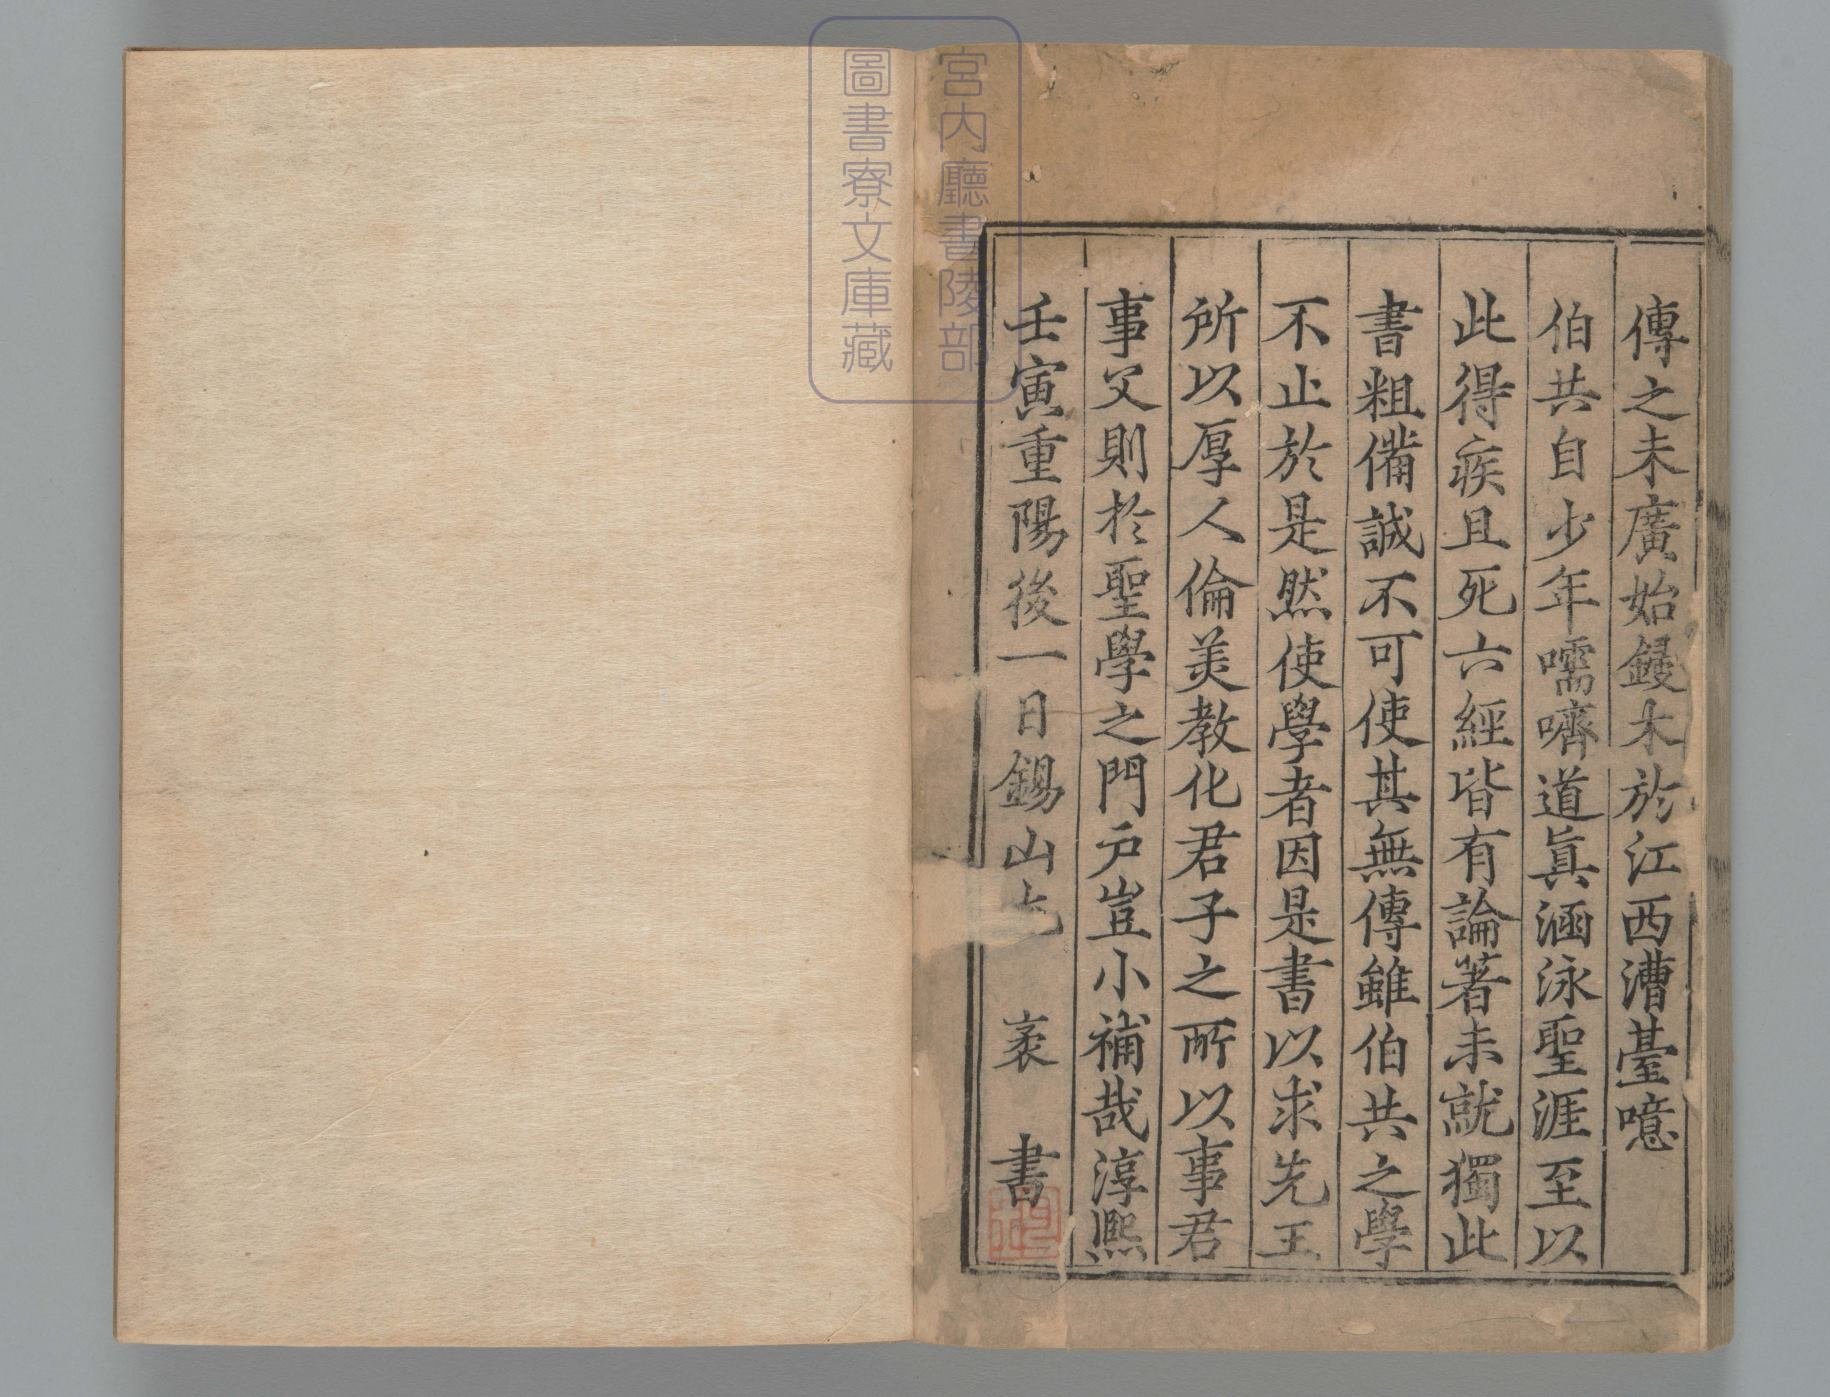 傳之未廣始鋟木於江西漕臺噫
伯共自少年嚅嚌道眞涵泳聖涯至以
此得疾且死六經皆有論著未就獨此
書粗備誠不可使其無傳雖伯共之學
不止於是然使學者因是書以求先王
所以厚人倫美教化君子之所以事君
事父則於聖學之門戶豈小補哉淳熙
壬寅重陽後一日錫山尤 袤 書
宮内廳書陵部
圖書寮文庫藏